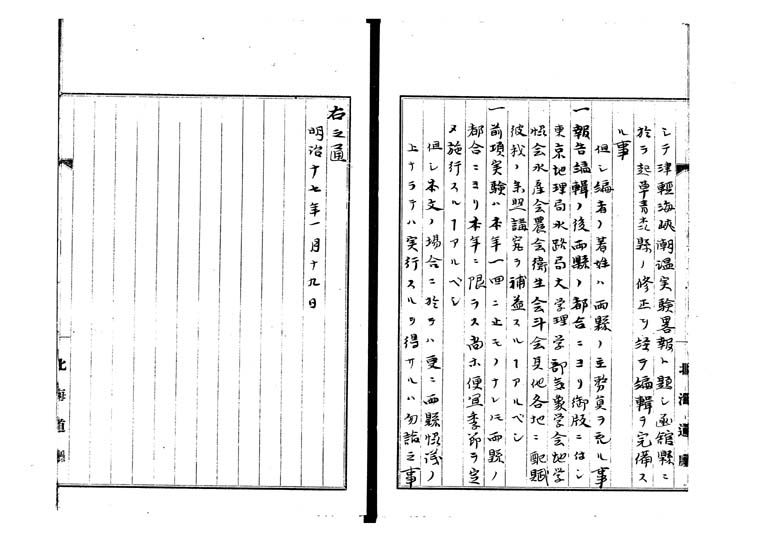 シテ津軽海峡潮温実験畧報ト題シ函館縣ニ
於テ起草青森縣ノ修正ヲ経テ編輯ヲ完備ス
ル事
但シ編者ノ著姓ハ両縣ノ主務員ヲ記ル事
一報告編輯ノ後両縣ノ都合ニヨリ御版ニ付シ
東京地理局水路局大学理学部気象学会地学
協会水産会農会衛生会斗会其他各地ニ配賦
彼我ノ参照講究ヲ補益スルヿアルベシ
一前項実験ハ本年一回ニ止モノナレ𪜈両縣ノ
都合ニヨリ本年ニ限ラス尚ホ便宜季節ヲ定
メ施行スルヿアルベシ
但シ本文ノ場合ニ於テハ更ニ両縣協議ノ
上ナラテハ実行スルヲ得サルハ勿論之事
北海道廳
右之通
明治十七年一月十九日
北海道廳